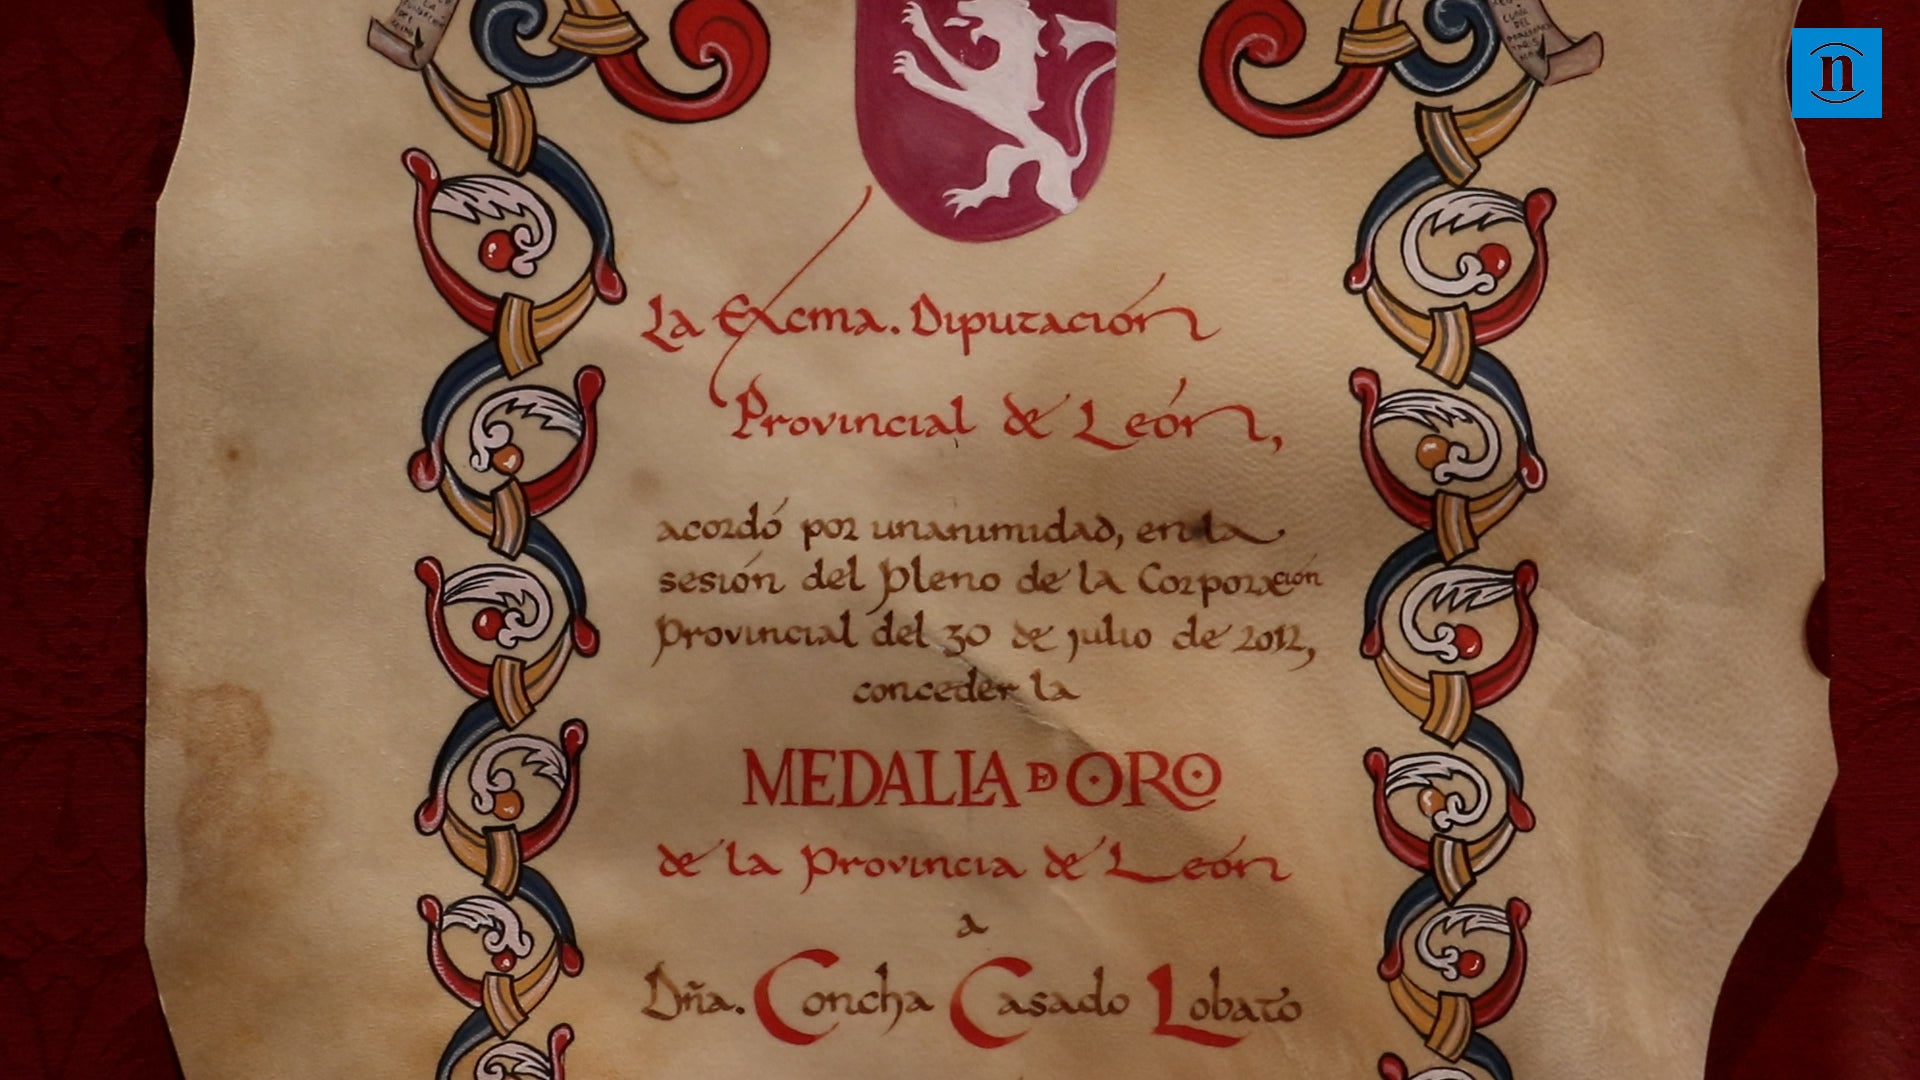 CUNA
DEL
n
La Excma. Diputación
Provincial de León,
acordó por unanimidad, en la
sesión del Pleno de la Corporación
Provincial del 30 de julio de 2012,
conceder la
MEDALLA DE ORO
de la Provincia de León
a
Dña. Concha Casado Lobato